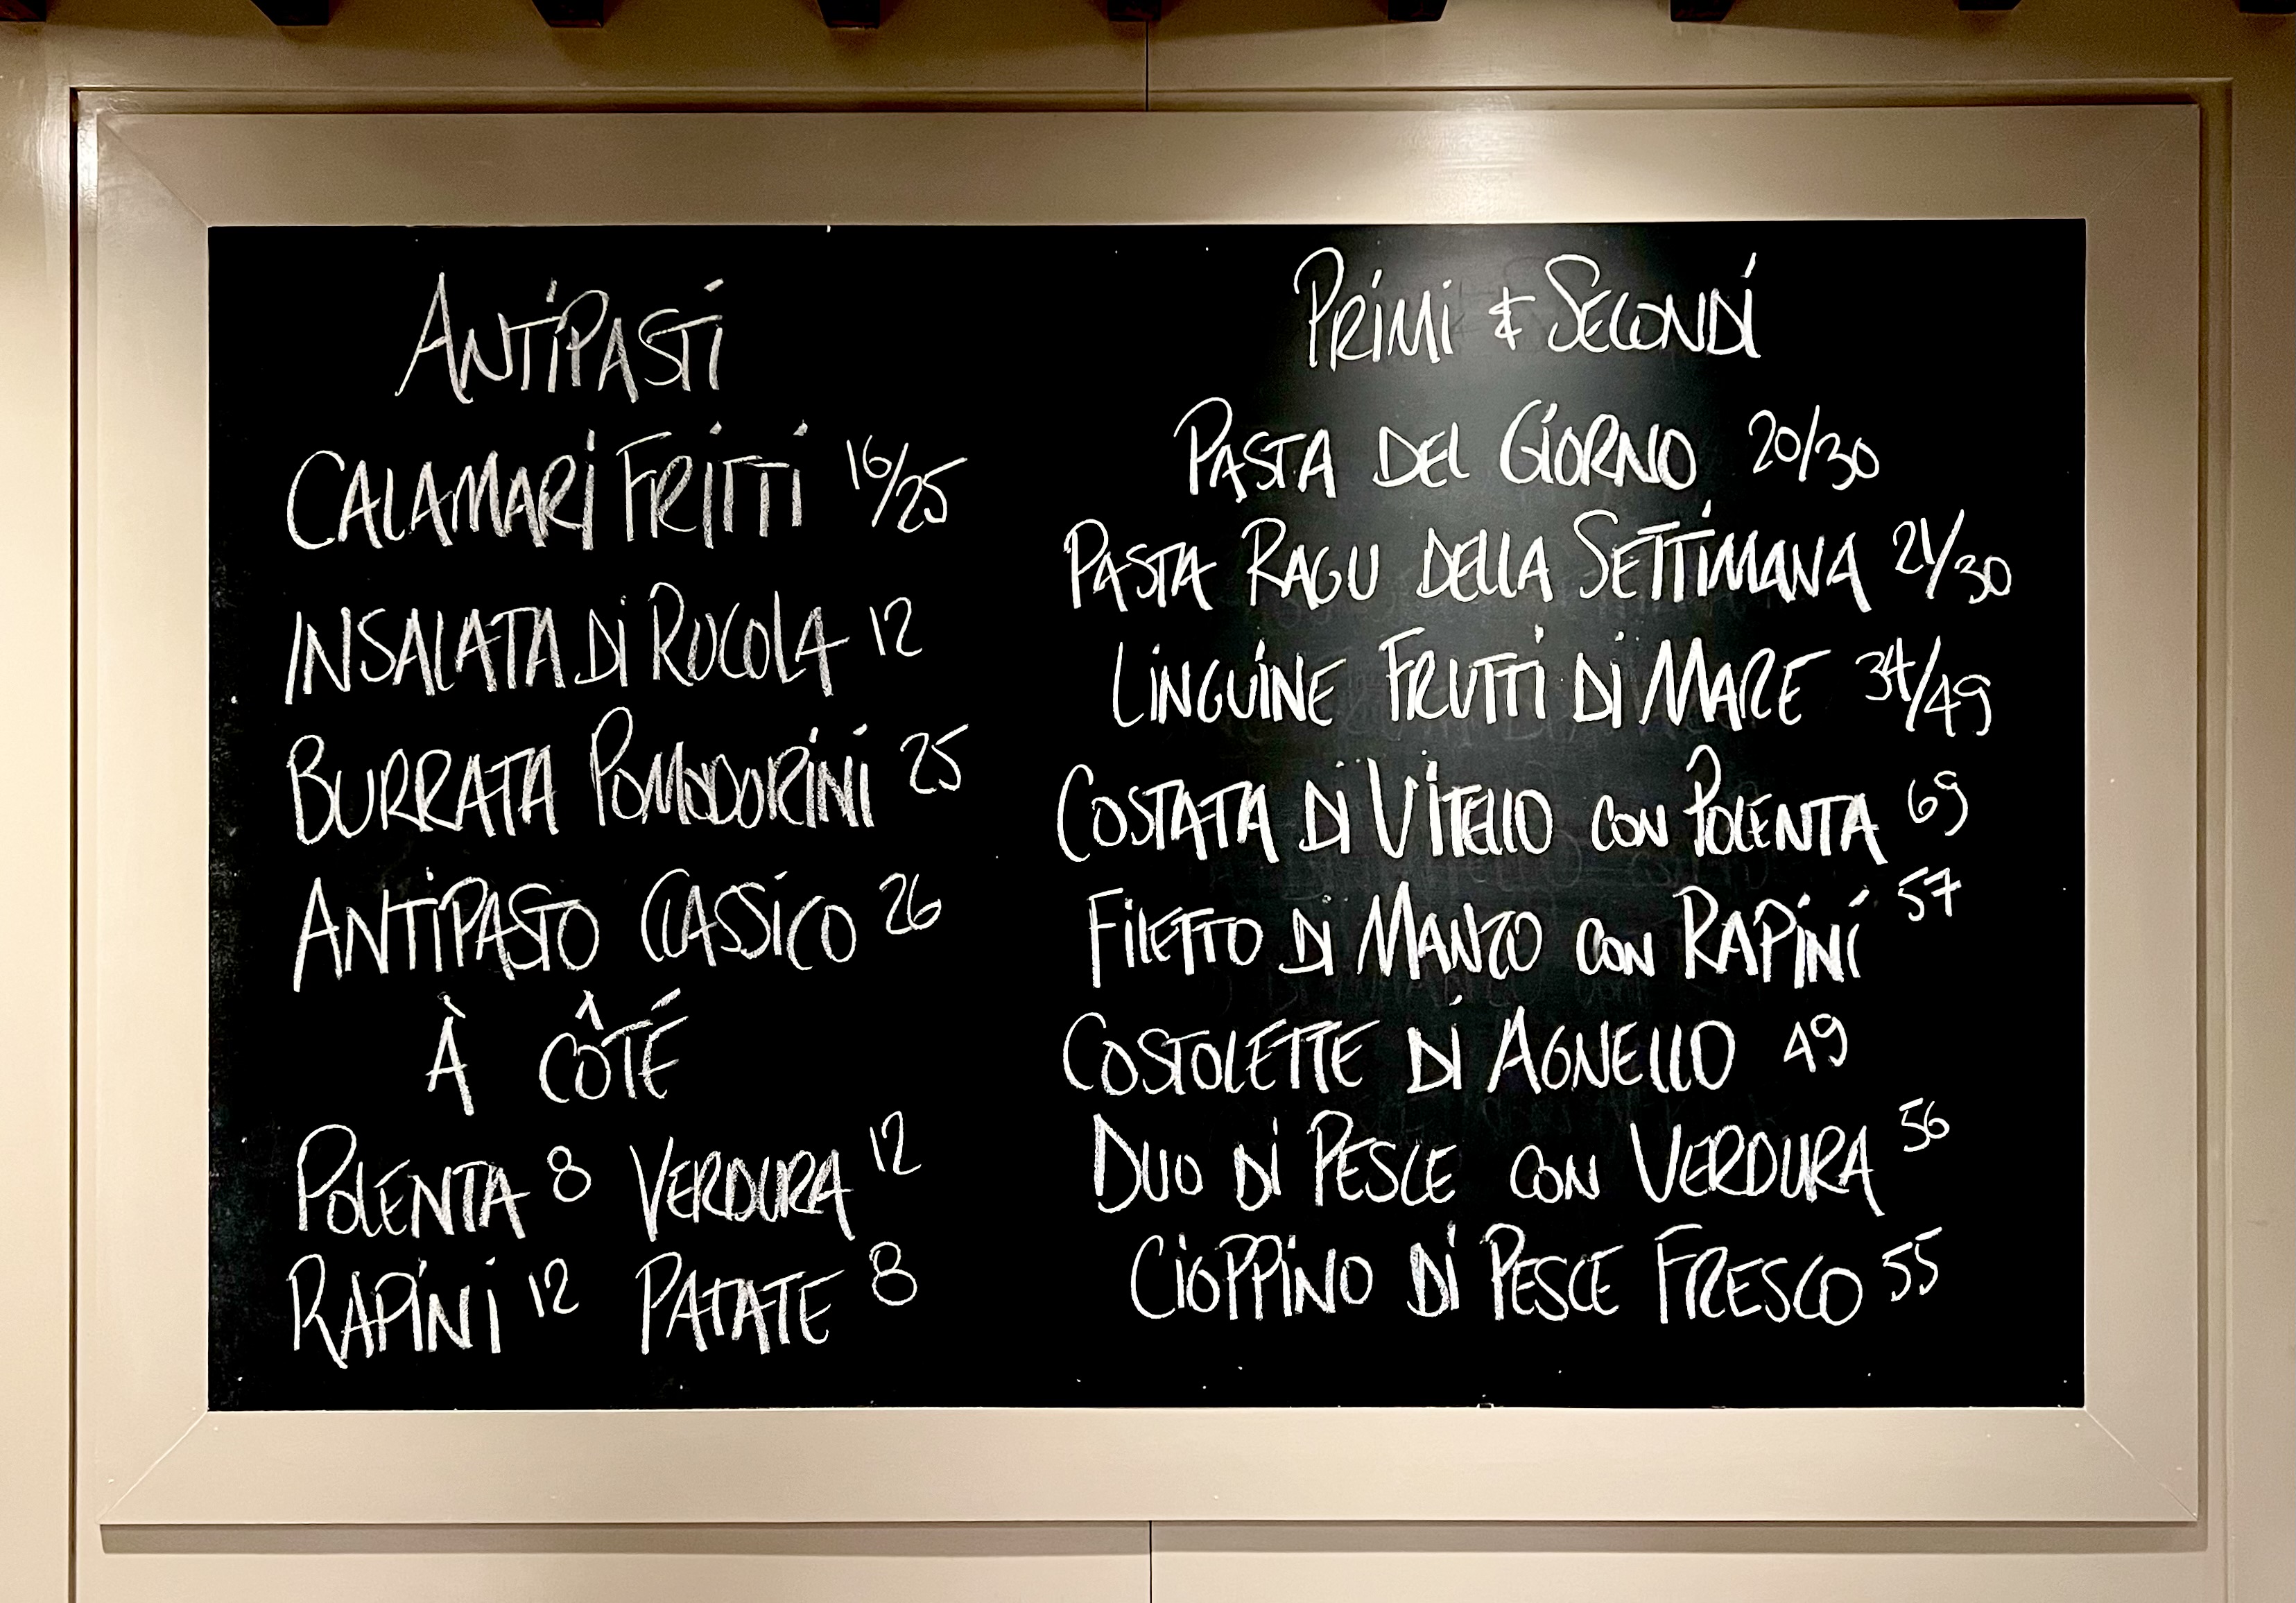 ANTIPASTI
CALAMARI FRITTI 16/25
INSALATA DI RUCOLA 12
BURRATA POMODORINI 25
ANTIPASTO CLASSICO 26
À CÔTÉ
POLENTA 8 VERDURA 12
RAPINI 12 PATATE 8
PRIMI & SECONDI
PASTA DEL GIORNO 20/30
PASTA RAGU DELLA SETTIMANA 21/30
LINGUINE FRUTTI DI MARE 34/49
COSTATA DI VITELLO CON POLENTA 69
FILETTO DI MANZO CON RAPINI 57
COSTOLETTE DI AGNELLO 49
DUO DI PESCE CON VERDURA 56
CIOPPINO DI PESCE FRESCO 55